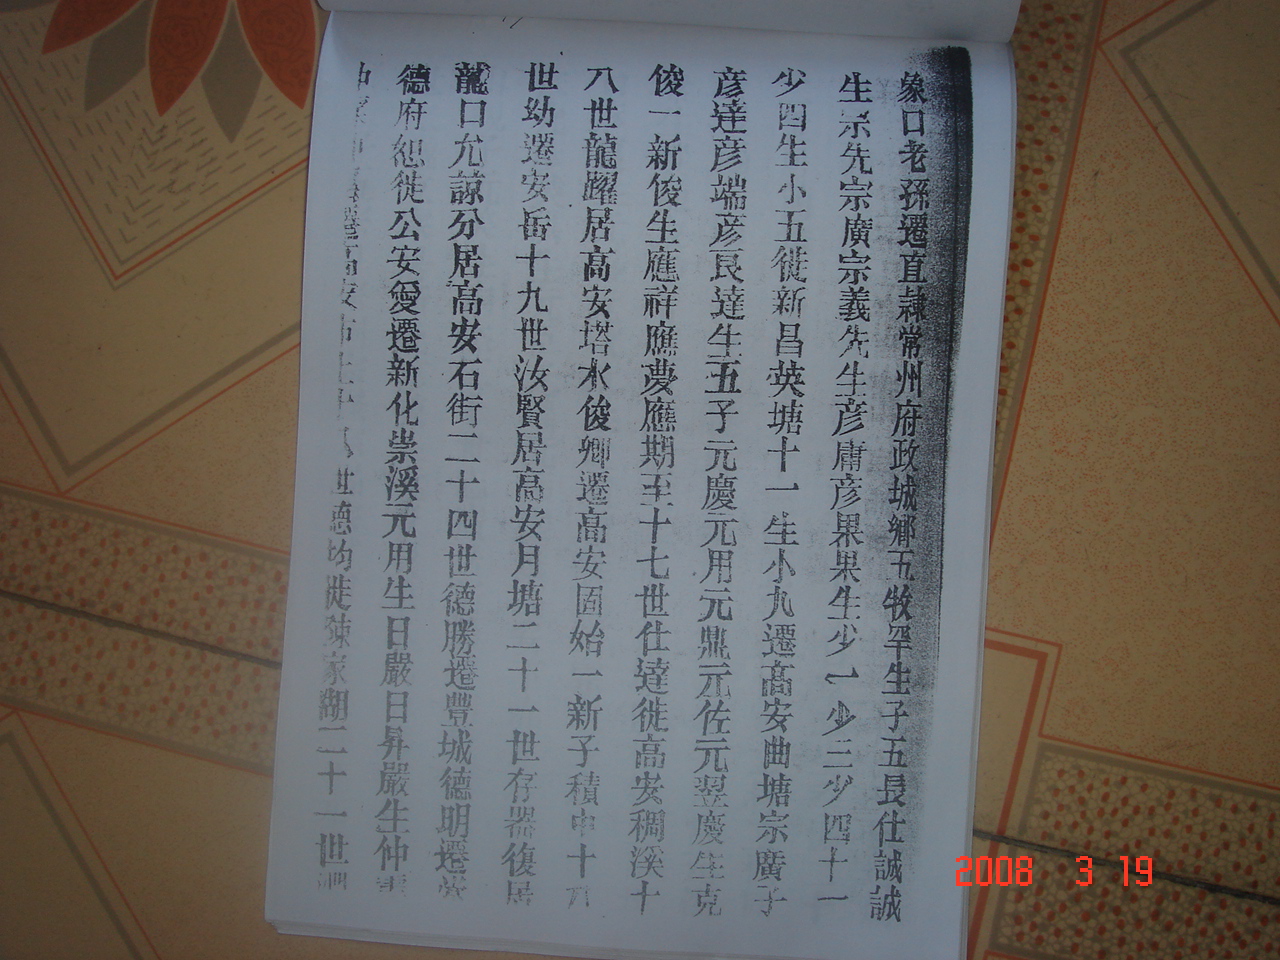 象口老孫遷直隸常州府政城鄉五牧罕生子五長仕誠誠
生宗先宗廣宗義先生彥庸彥果果生少一少三少四十一
少四生小五徙新昌英塘十一生小九遷高安曲塘宗廣子
彥達彥端彥良達生五子元慶元用元鼎元佐元翌慶生克
俊一新俊生應祥應夢應期至十七世仕達徙高安稠溪十
八世龍躍居高安塔水俊卿遷高安固始一新子積中十六
世幼遷安岳十九世汝賢居高安月塘二十一世存器復居
龍口允諒分居高安石街二十四世德勝遷豐城德明遷
德府恕徙公安愛遷新化崇溪元用生日嚴日昇嚴生仲
仲 遷高安市 世德均徙 家湖二十一世
2008 3 19